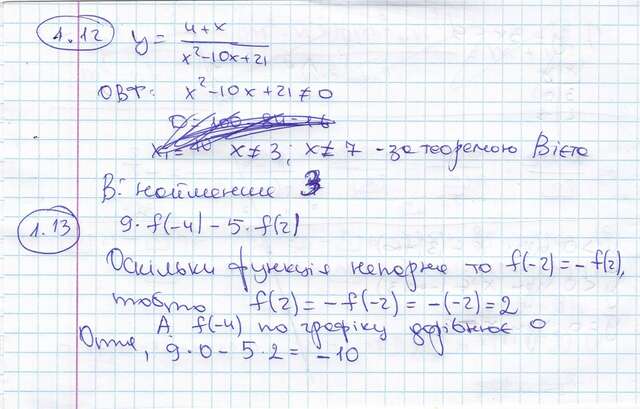 1.12 y = 4+x / x²-10x+21
ОВТ: x²-10x+21 ≠ 0
x ≠ 3; x ≠ 7 - за теоремою Вієта
В: найменше 3
1.13 9·f(-4) - 5·f(2)
Оскільки функція непарна то f(-2) = -f(2),
тобто f(2) = -f(-2) = -(-2) = 2
А f(-4) по графіку дорівнює 0
Отже, 9·0 - 5·2 = -10